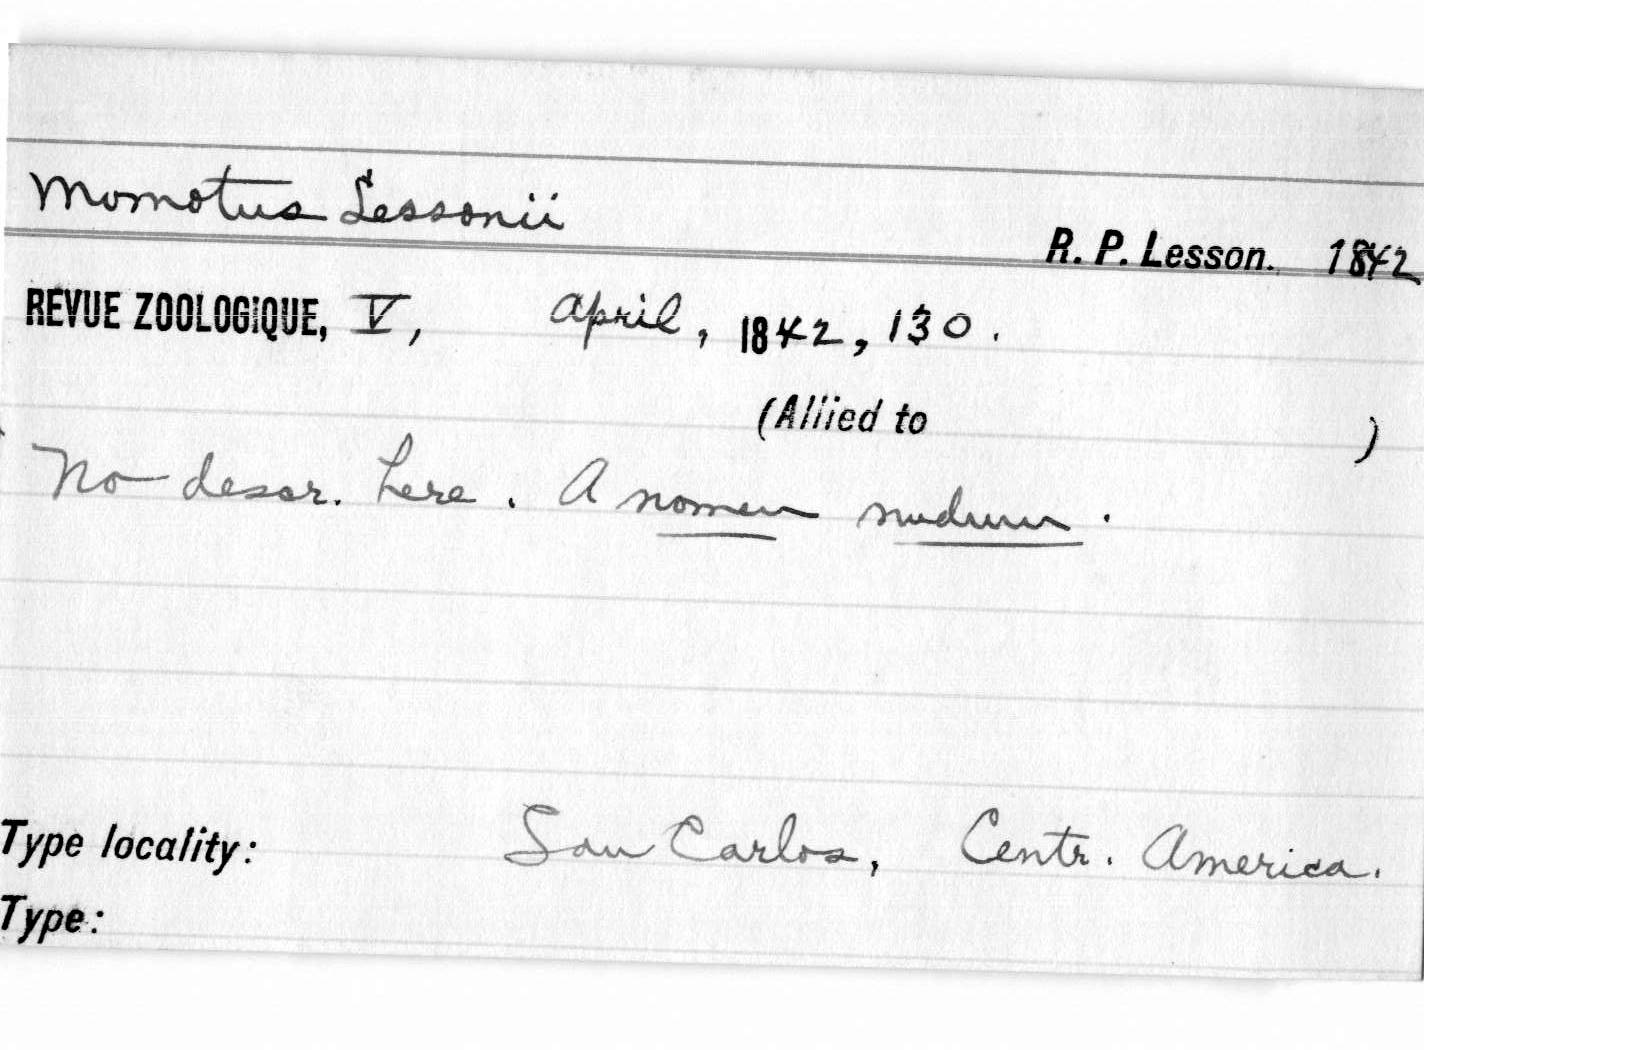 Momotus Lessonii
R. P. Lesson. 1842
REVUE ZOOLOGIQUE, V, April, 1842, 130.
(Allied to )
No descr. here. A nomen nudum.
Type locality: San Carlos, Centr. America.
Type: